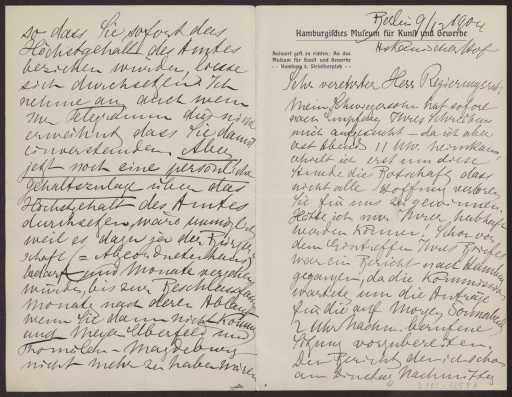 Berlin 9/12 1904
Hamburgisches Museum für Kunst und Gewerbe
Askanischer Hof
Antwort geft zu richten: An das
Museum für Kunst und Gewerbe
Hamburg 5, Steintorplatz
Sehr verehrter Herr Regierungsrat,
Mein Schwiegersohn hat sofort
nach Empfang Ihres Schreibens
mich aufgesucht – da ich aber
erst Abends 11 Uhr heimkam,
erhielt ich erst um diese
Stunde die Botschaft, dass
nicht alle Hoffnung verloren,
Sie für uns zu gewinnen.
Hätte ich nur Ihrer habhaft
werden können! Schon vor
dem Eintreffen Ihres Briefes
war ein Bericht nach Hamburg
gegangen, da die Kommission
wartete um die Anträge
für die auf Morgen, Sonnabend
2 Uhr Nachm. berufene
Sitzung vorzubereiten.
Den Bericht, den ich schon
am Dienstag Nachmittag
so dass Sie sofort das
Höchstgehalt des Amtes
beziehen würden, liesse
sich durchsetzen. Ich
nehme an, auch wenn
Ihr Telegramm dies nicht
erwähnt, dass Sie damit
einverstanden. Aber
jetzt noch eine persönliche
Gehaltszulage über das
Höchstgehalt des Amtes
durchsetzen, wäre unmöglich
weil es dazu ja der Bürger-
schaft (= Abgeordnetenhaus)
bedarf und Monate vergehen
würden, bis zur Beschlussfassung
Monate nach deren Ablauf
wenn Sie dann nicht kommen
auch Meyer-Elberfeld und
Thomälen-Magdeburg
nicht mehr zu haben wären